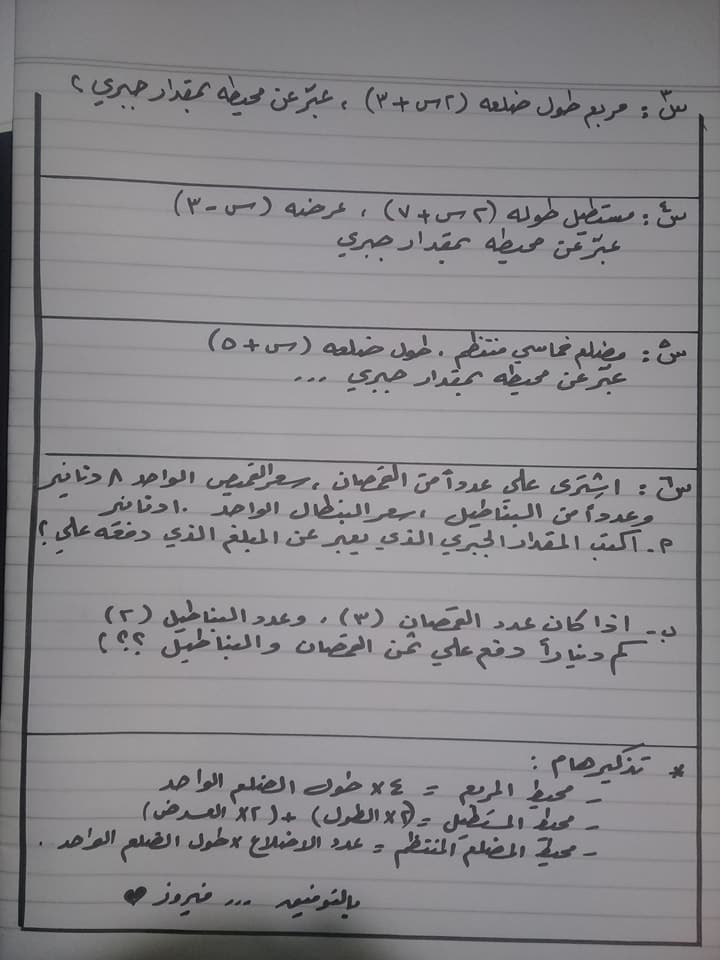 س٣: مربع طول ضلعه (٢س+٣)، عبّر عن محيطه بمقدار جبري؟
س٤: مستطيل طوله (٢س+٧)، عرضه (س-٣)
عبّر عن محيطه بمقدار جبري
س٥: مضلع خماسي منتظم، طول ضلعه (س+٥)
عبّر عن محيطه بمقدار جبري ...
س٦: اشترى علي عدداً من القمصان، سعر القميص الواحد ٨ دنانير
وعدداً من البناطيل، سعر البنطال الواحد ١٠ دنانير
٢- اكتب المقدار الجبري الذي يعبر عن المبلغ الذي دفعه علي؟
ب- اذا كان عدد القمصان (٣)، وعدد البناطيل (٢)
كم ديناراً دفع علي ثمن القمصان والبناطيل ؟؟؟
* تذكير هام :
- محيط المربع = ٤× طول الضلع الواحد
- محيط المستطيل = (٢×الطول) + (٢×العرض)
- محيط المضلع المنتظم = عدد الاضلاع × طول الضلع الواحد .
بالتوفيق ... فيروز ♥